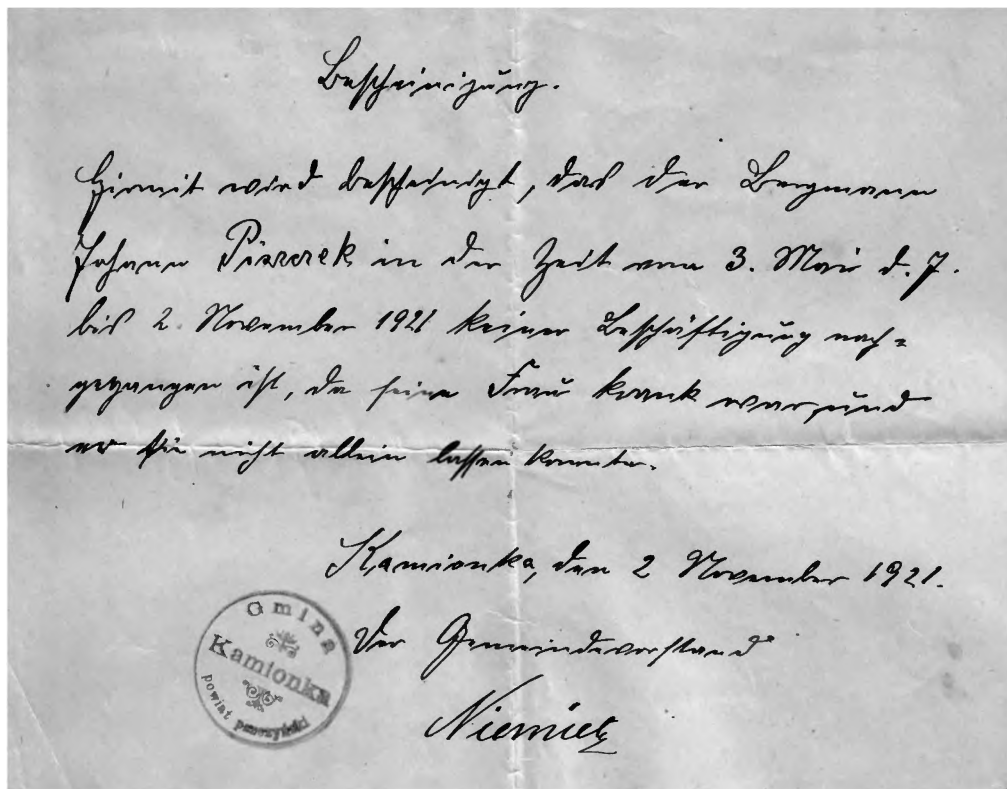 Bescheinigung.
Hiermit wird bescheinigt, das der Bergmann
Johann Piszczek in der Zeit vom 3. Mai d. J.
bis 2. November 1921 keiner Beschäftigung nach=
gegangen ist, da seine Frau krank war, und
er sie nicht allein lassen konnte.
Kamionka, den 2 November 1921.
Der Gemeindevorstand
Niemietz
Gmina
Kamionka
powiat pszczyński